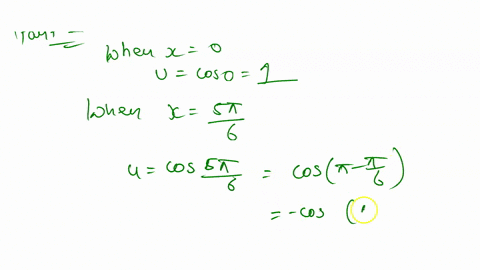 When x = 0
u = cos0 = 1
When x = 5π/6
u = cos 5π/6 = cos(π-π/6)
= -cos (